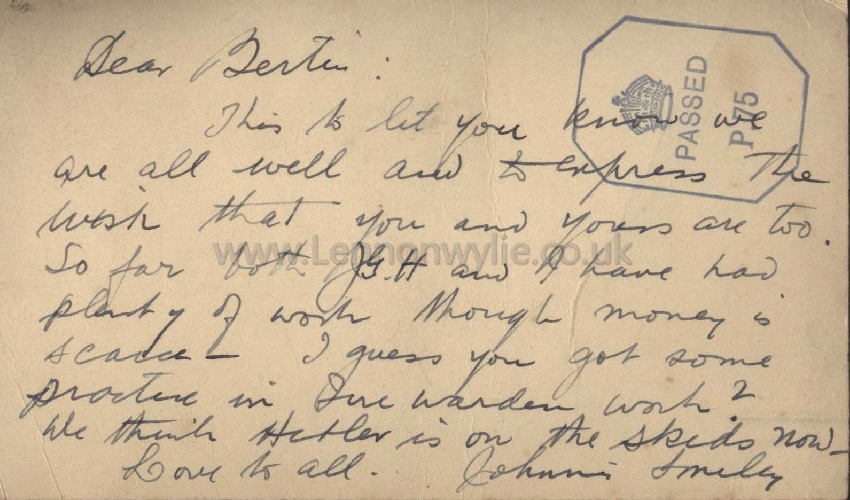 Dear Bertie :
This to let you know we
are all well and to express the
wish that you and yours are too.
So far both G.H and I have had
plenty of work though money is
scarce — I guess you got some
practice in fire warden work?
We think Hitler is on the skids now —
Love to all. Johnnie Smiley
PASSED
P.75
www.Lennonwylie.co.uk